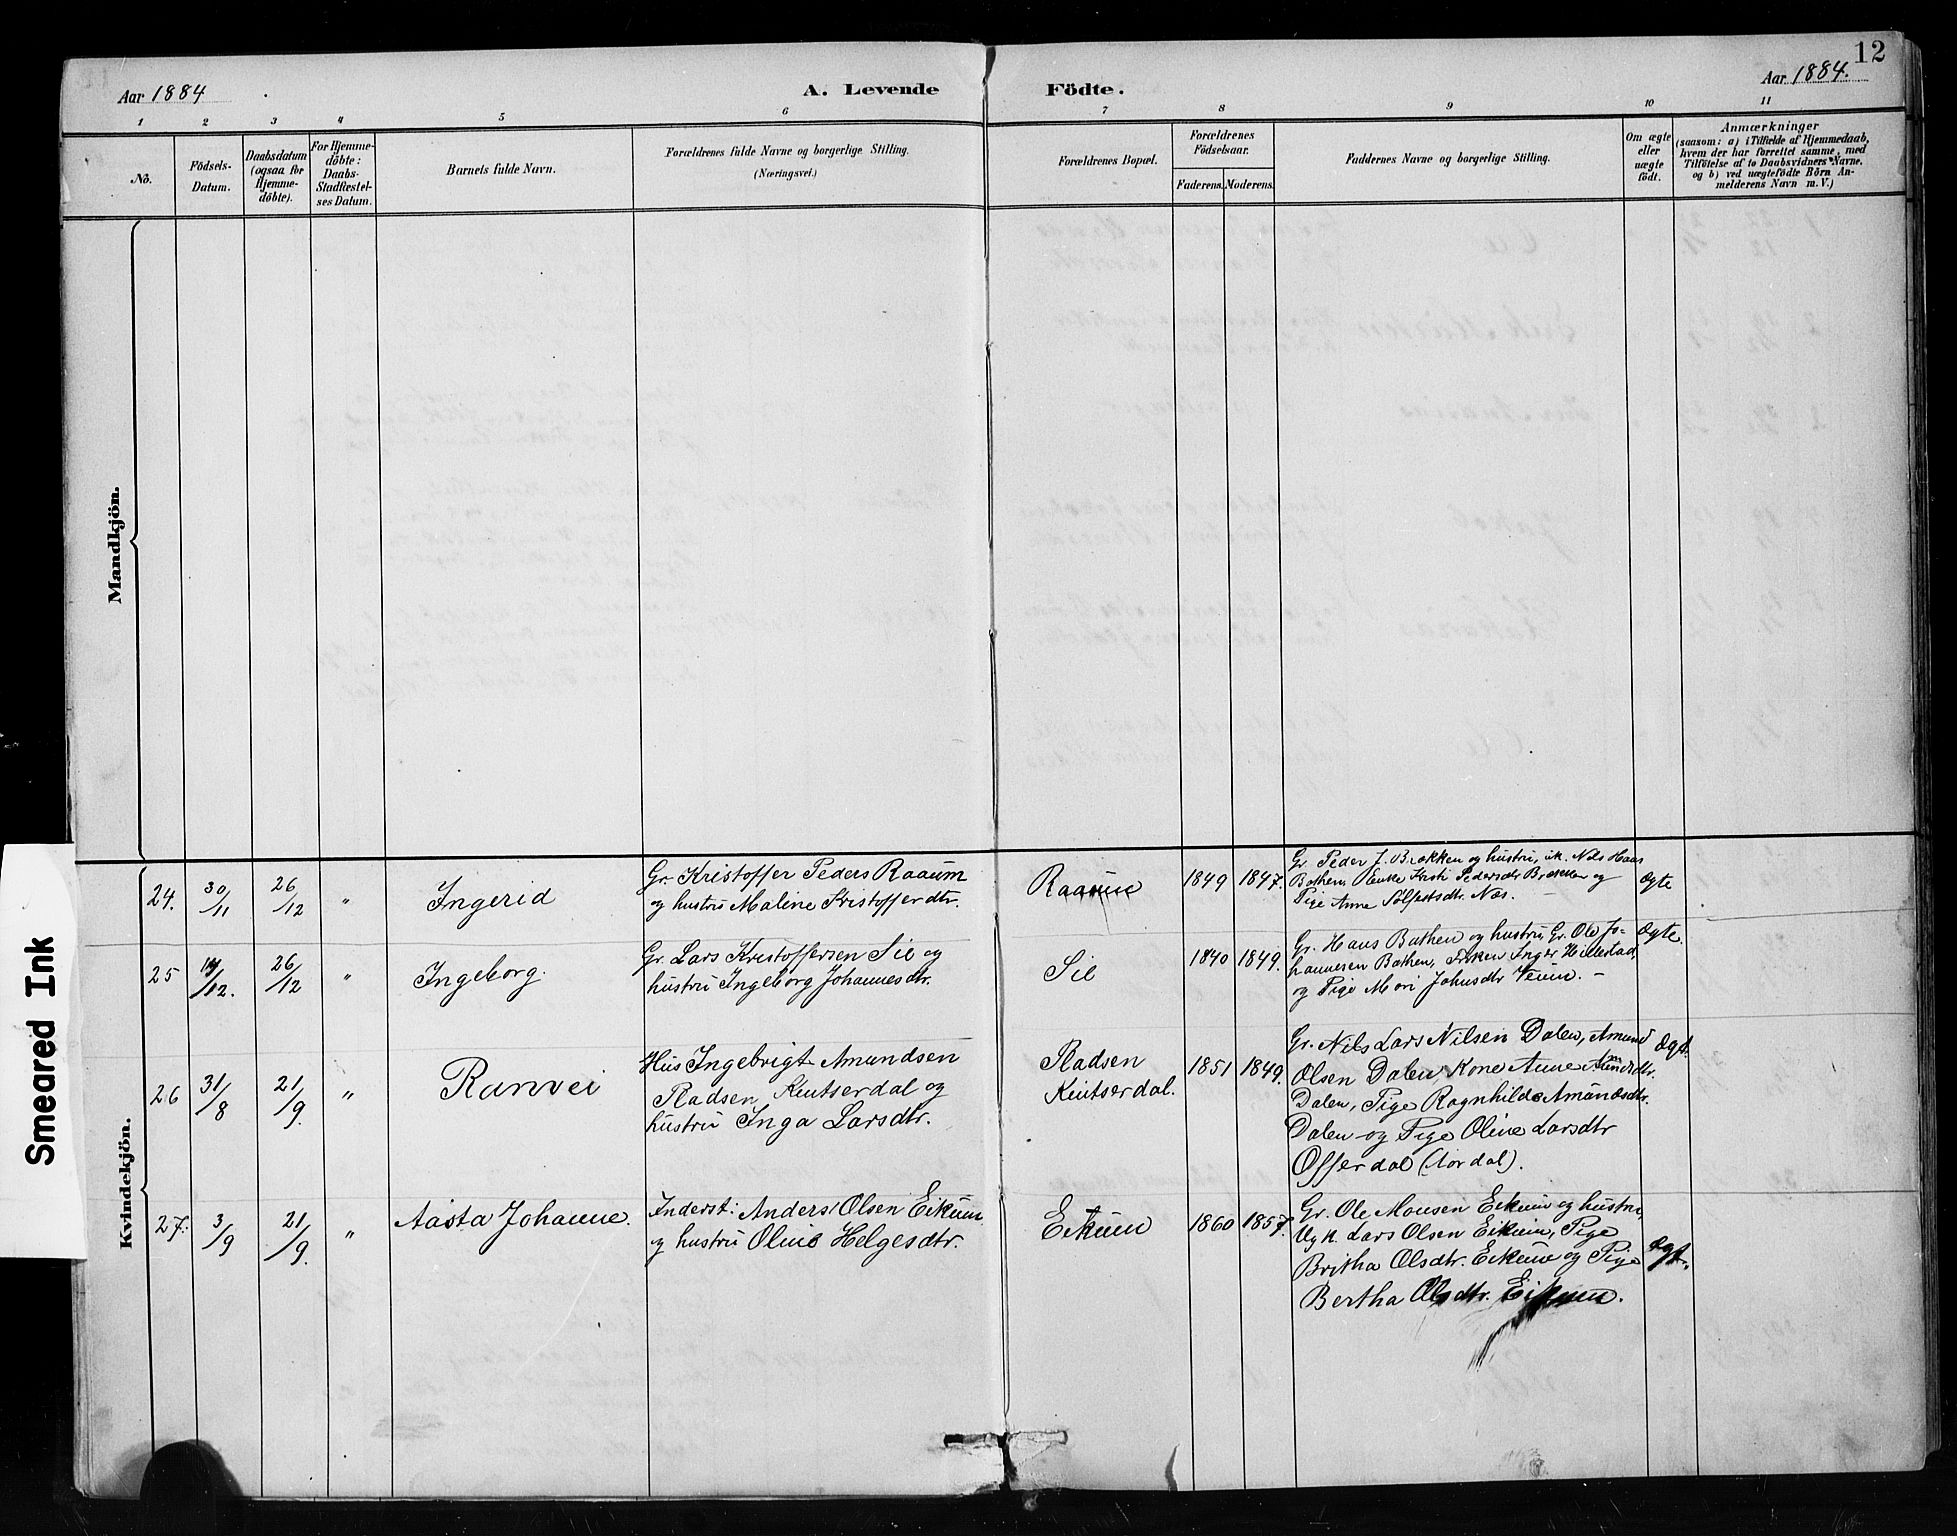 12
Aar 1884
A. Levende Födte.
Aar 1884.
1 2 3 4 5 6 7 8 9 10 11
No.
Födsels-
Datum.
Daabsdatum
(ogsaa for
Hjemme-
döbte).
For Hjemme-
döbte:
Daabs-
Stadfæstel-
ses Datum.
Barnets fulde Navn.
Forældrenes fulde Navne og borgerlige Stilling.
(Næringsvei.)
Forældrenes Bopæl.
Forældrenes
Födselsaar.
Faderens. Moderens.
Faddernes Navne og borgerlige Stilling.
Om ægte
eller
uægte
födt.
Anmærkninger
(saasom: a) i Tilfælde af Hjemmedaab,
hvem der har forrettet samme, med
Tilföielse af to Daabsvidners Navne.
og b) ved uægtefödte Börn An-
melderens Navn m. V.)
Mandkjön.
Kvindekjön.
Smeared Ink
24. 30/11 26/12 " Ingerid
Gr. Kristoffer Peders Raaum
og hustru Maline Kristofferdtr.
Raaum 1849 1847.
Gr. Peder J. Brækken og hustru, uk. Nils Hans
Bathen, Enke Kristi Pedersdtr Brækken og
Pige Anne Sølfestsdtr. Næs.
Ægte
25 14/12. 26/12 " Ingeborg.
Gr. Lars Kristoffersen Sie og
hustru Ingeborg Johannesdtr.
Sie 1840 1849.
Gr. Hans Bathen og hustru, Gr. Ole Jo-
hannesen Bathen, Frøken Inger Hillestad,
og Pige Mari Johnsdtr Veum. -
Ægte.
26 31/8 21/9. " Ranvei
Hus Ingebrigt Amundsen
Pladsen Keutserdal og
hustru Inga Larsdtr.
Pladsen
Keutserdal.
1851 1849.
Gr. Nils Lars Nilsen Dalen, Amund
Olsen Dalen, Kone Anne Amundsdtr.
Dalen, Pige Ragnhilde Amundsdtr.
Dalen og Pige Oline Larsdtr
Offerdal (Aardal).
Ægt.
27. 3/9 21/9. " Aasta Johanne.
Inderst: Anders Olsen Eikum
og hustru Oline Helgesdtr.
Eikum 1860 1857.
Gr. Ole Monsen Eikum og hustru,
Ugk. Lars Olsen Eikum, Pige
Britha Olsdtr. Eikum og Pige
Bertha Olsdtr. Eikum.
Ægt.